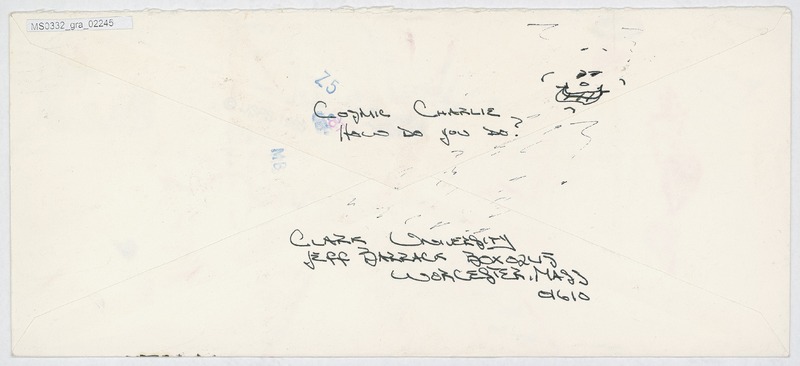 MS0332_gra_02245
Z5
COZMIC CHARLIE
HOW DO YOU DO?
MB
CLARK UNIVERSITY
JEFF BOX 0245
WORCESTER, MASS
01610